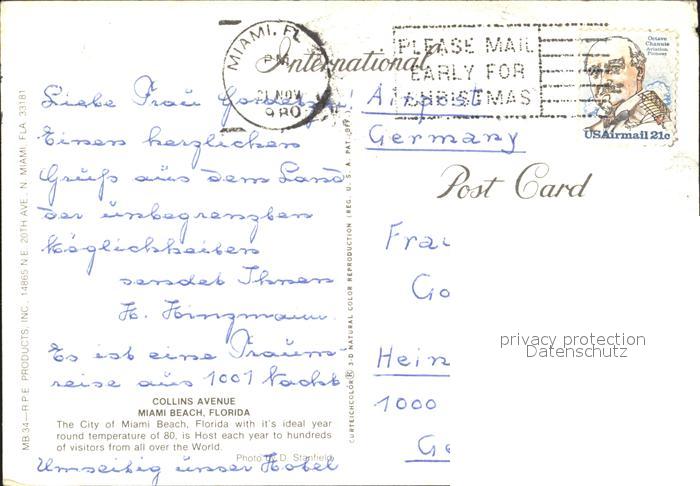 MIAMI, FL
PM
21 NOV
1980
PLEASE MAIL
EARLY FOR
CHRISTMAS
Octave
Chanute
Aviation
Pioneer
USAirmail 21c
International
Post Card
Liebe Frau
Einen herzlichen
Gruß aus dem Land
der unbegrenzten
Möglichkeiten
sendet Ihnen
H. Hingmann.
Es ist eine Traum-
reise aus 1001 Nacht
COLLINS AVENUE
MIAMI BEACH, FLORIDA
The City of Miami Beach, Florida with it's ideal year
round temperature of 80, is Host each year to hundreds
of visitors from all over the World.
Photo by D. Stanfield
Umseitig unser Hotel
MB.34—R.P.E. PRODUCTS, INC., 14865 N.E. 20TH AVE., N. MIAMI, FLA. 33181
CURTEICHCOLOR® 3-D NATURAL COLOR REPRODUCTION (REG. U.S.A. PAT. OFF.)
Airpost
Germany
Frau
Go
Hein
1000
Ge
privacy protection
Datenschutz